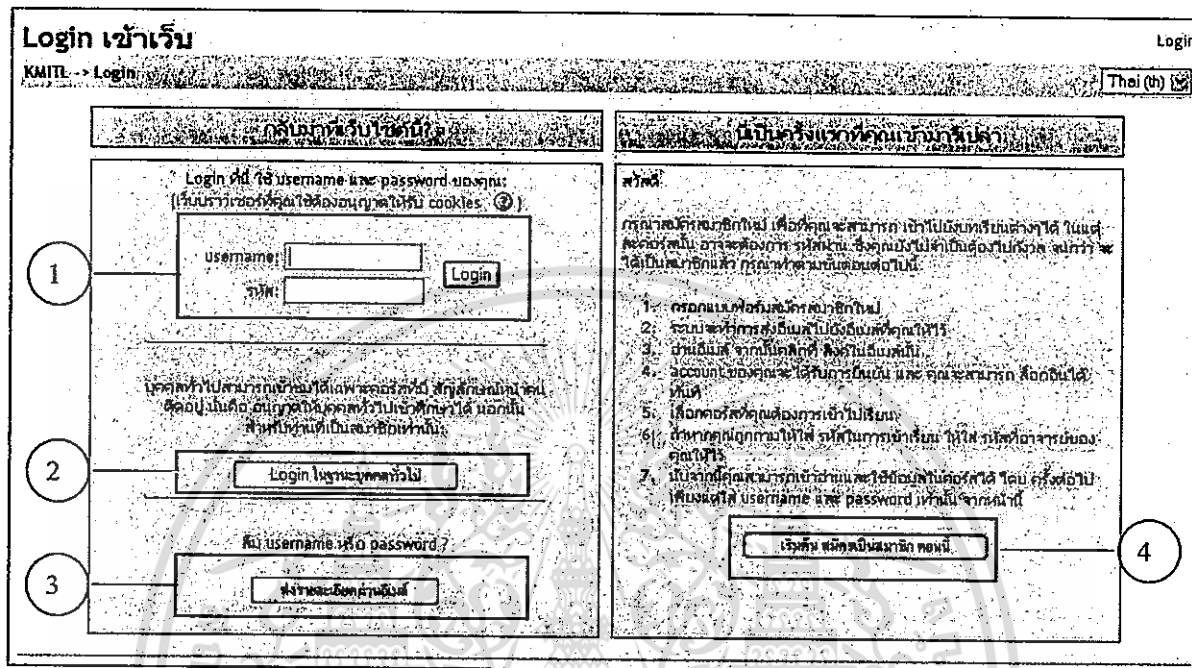 Login เข้าเว็บ
Login
KMITL -> Login
Thai (th)
กลับมาที่เว็บไซต์นี้?
นี่เป็นครั้งแรกที่คุณเข้ามารึเปล่า
Login ที่นี่ ใช้ username และ password ของคุณ:
(เว็บบราวเซอร์ที่คุณใช้ต้องอนุญาตให้รับ cookies ?)
1
username:
Login
รหัส:
บุคคลทั่วไปสามารถเข้าชมได้เฉพาะคอร์สที่มี สัญลักษณ์หน้าคน
ติดอยู่ นั่นคือ อนุญาตให้บุคคลทั่วไปเข้าศึกษาได้ นอกนั้น
สำหรับท่านที่เป็นสมาชิกเท่านั้น
2
Login ในฐานะบุคคลทั่วไป
ลืม username หรือ password ?
3
ส่งรายละเอียดผ่านอีเมล์
สวัสดี
กรุณาสมัครสมาชิกใหม่ เพื่อที่คุณจะสามารถ เข้าไปยังบทเรียนต่างๆได้ ในแต่
ละคอร์สนั้น อาจจะต้องการ รหัสผ่าน ซึ่งคุณยังไม่จำเป็นต้องไปกังวล จนกว่า จะ
ได้เป็นสมาชิกแล้ว กรุณาทำตามขั้นตอนต่อไปนี้
1. กรอกแบบฟอร์มสมัครสมาชิกใหม่
2. ระบบจะทำการส่งอีเมลไปยังอีเมลที่คุณให้ไว้
3. อ่านอีเมล์ จากนั้นคลิกที่ ลิงค์ในอีเมลนั้น
4. account ของคุณจะได้รับการยืนยัน และ คุณจะสามารถ ล็อกอินได้
ทันที
5. เลือกคอร์สที่คุณต้องการเข้าไปเรียน
6. ถ้าหากคุณถูกถามให้ใส่ รหัสในการเข้าเรียน ให้ใส่ รหัสที่อาจารย์ของ
คุณให้ไว้
7. นับจากนี้คุณสามารถเข้าอ่านและใช้ข้อมูลในคอร์สได้ โดย ครั้งต่อไป
เพียงแต่ใส่ username และ password เท่านั้น จากหน้านี้
เริ่มต้น สมัครเป็นสมาชิก ตอนนี้
4